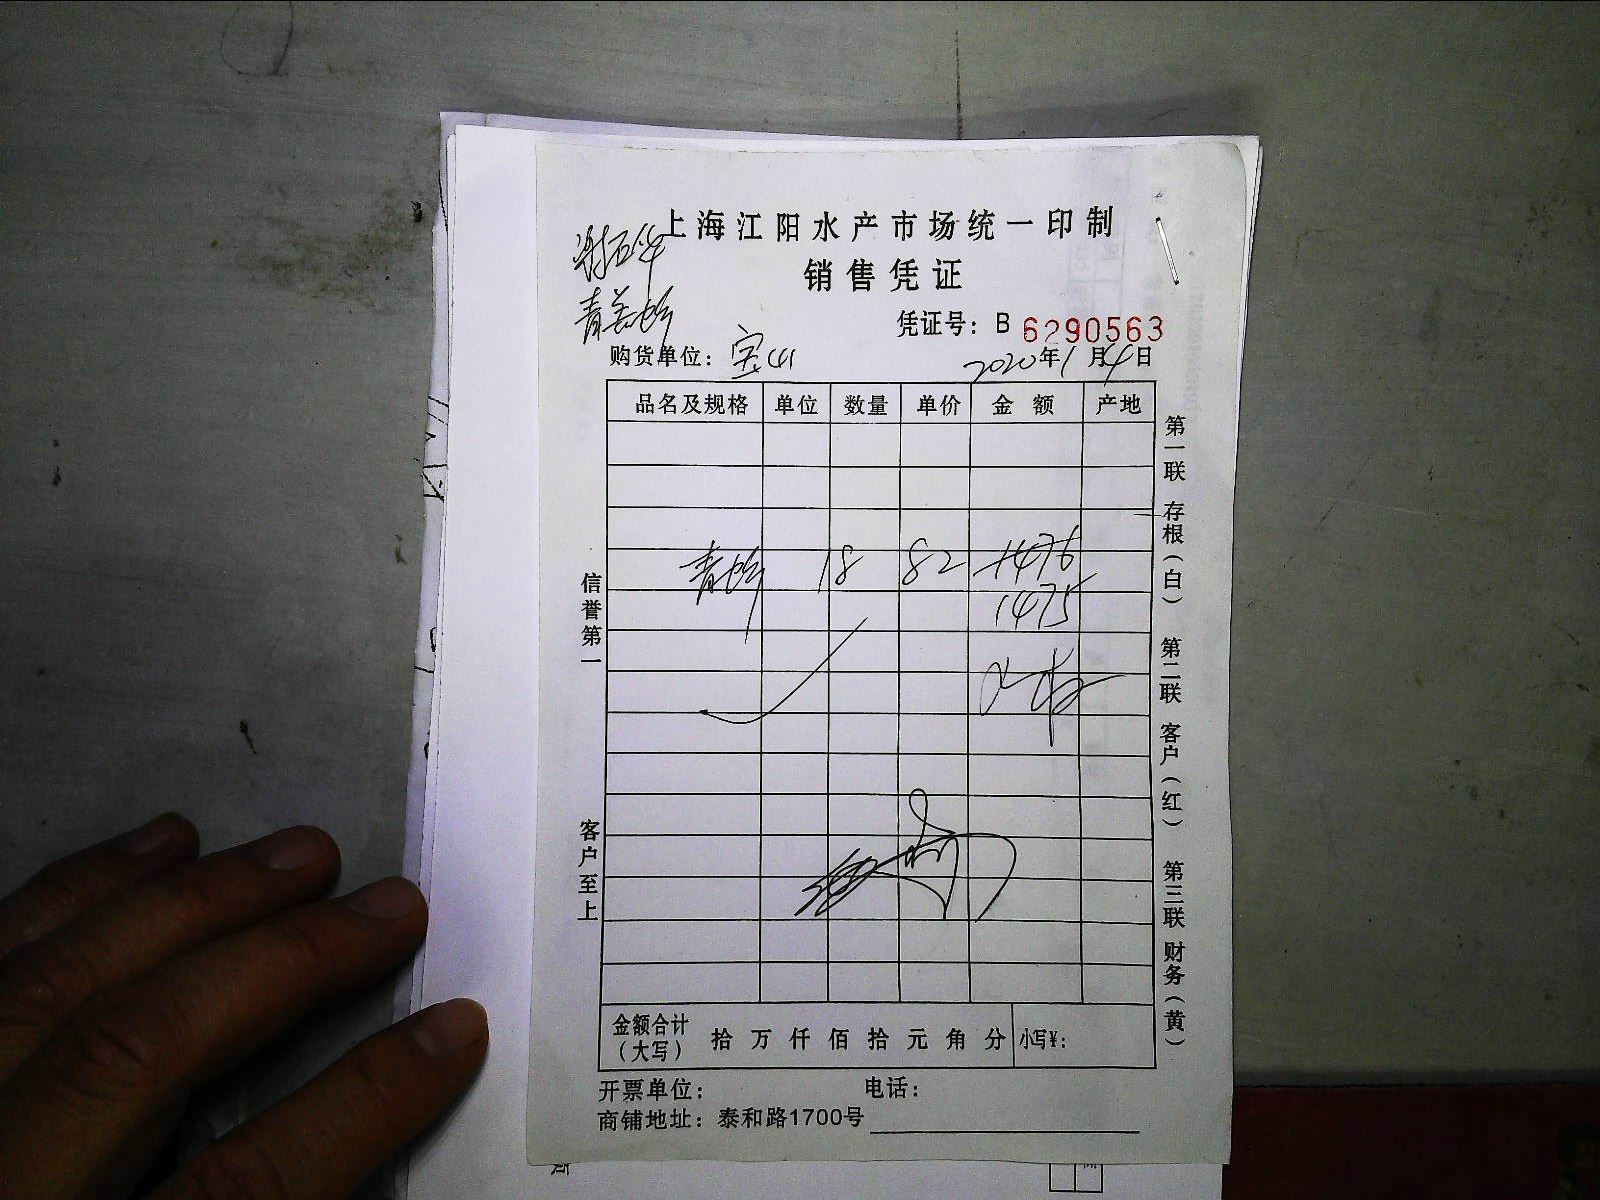 上海江阳水产市场统一印制
销售凭证
凭证号：B 6290563
购货单位：宝山 2020年1月4日
品名及规格 单位 数量 单价 金额 产地
18 82 1476
1475
信誉第一
客户至上
第一联 存根（白） 第二联 客户（红） 第三联 财务（黄）
金额合计（大写） 拾 万 仟 佰 拾 元 角 分 小写¥：
开票单位： 电话：
商铺地址：泰和路1700号